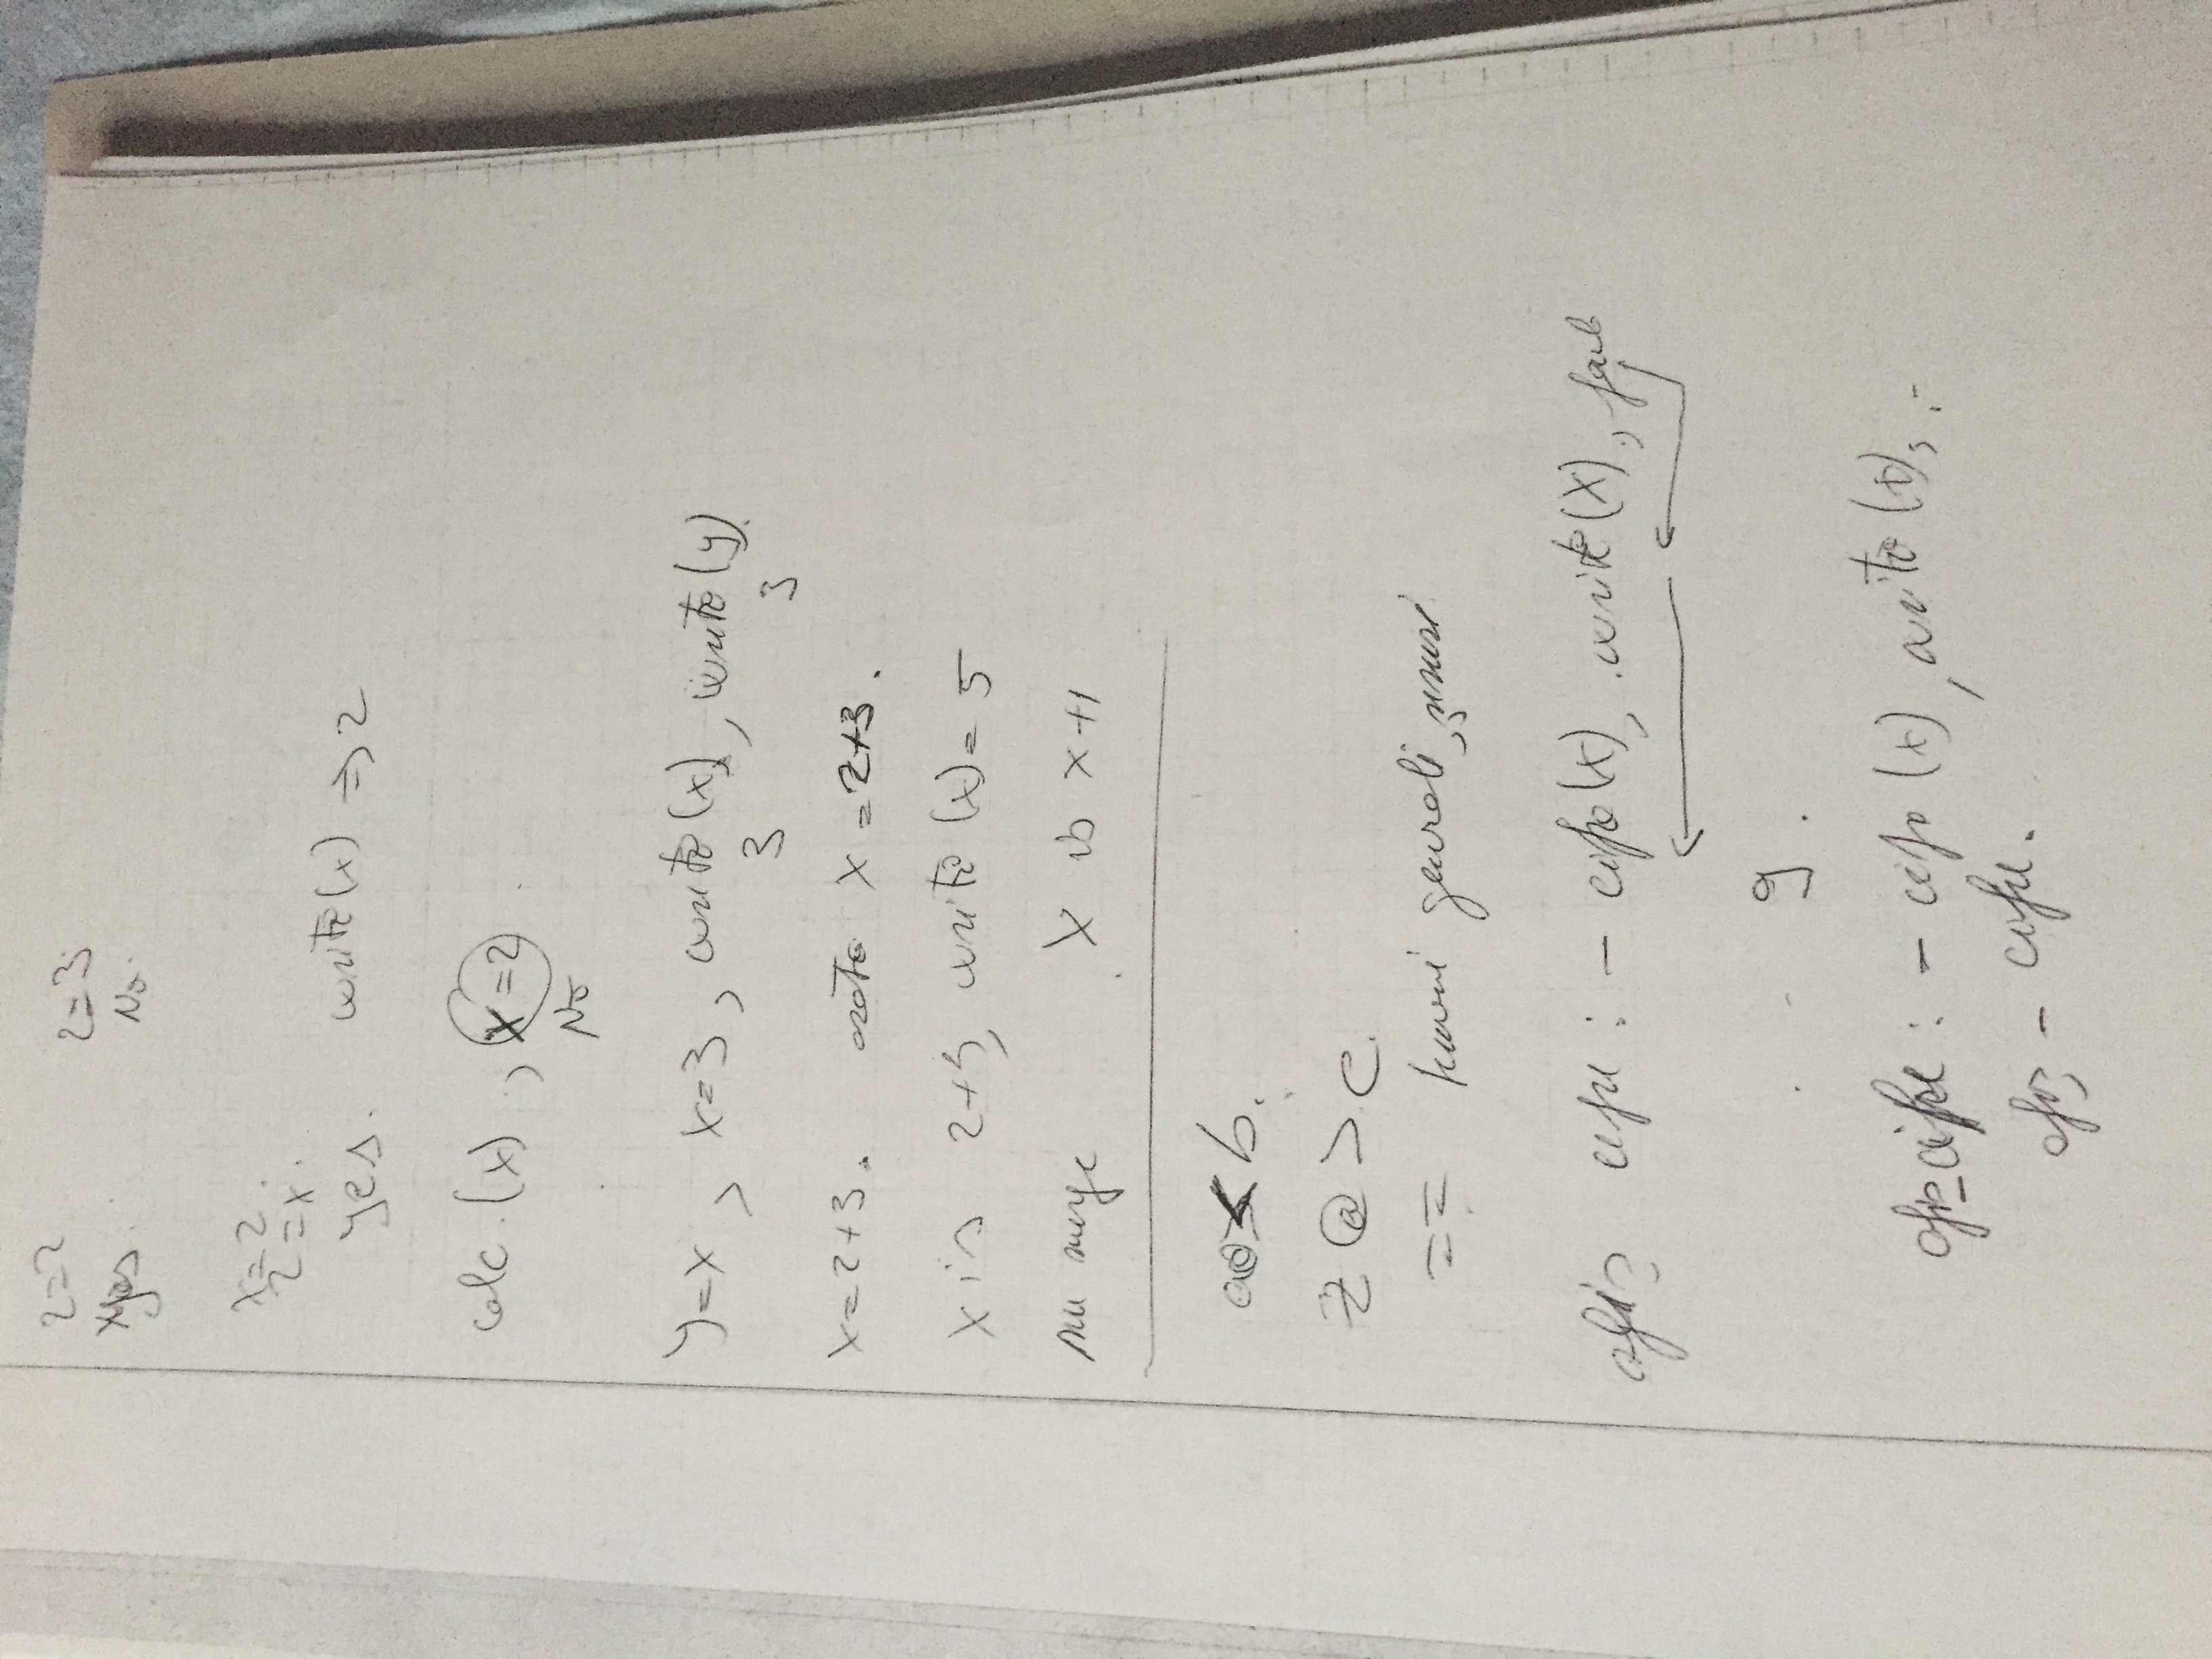 2=2 2=3
Yes. No.
x=2.
2=x.
yes. write(x) => 2
calc.(x), x=2.
No
y=x, x=3, write(x), write(y).
3 3
x=2+3. x=2+3.
x is 2+3, write(x)=5
nu merge X is x+1
@< b.
z @> c.
== generali,
afis cifre :- cifra(X), write(X), fail
9.
afis_cifre :- cifra(x), write(x),
afis_cifre.